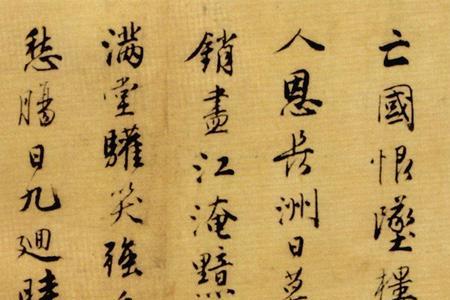 亡國恨墜樓
人恩長洲日暮
銷盡江淹黯
滿堂驩笑強
愁腸日九廻